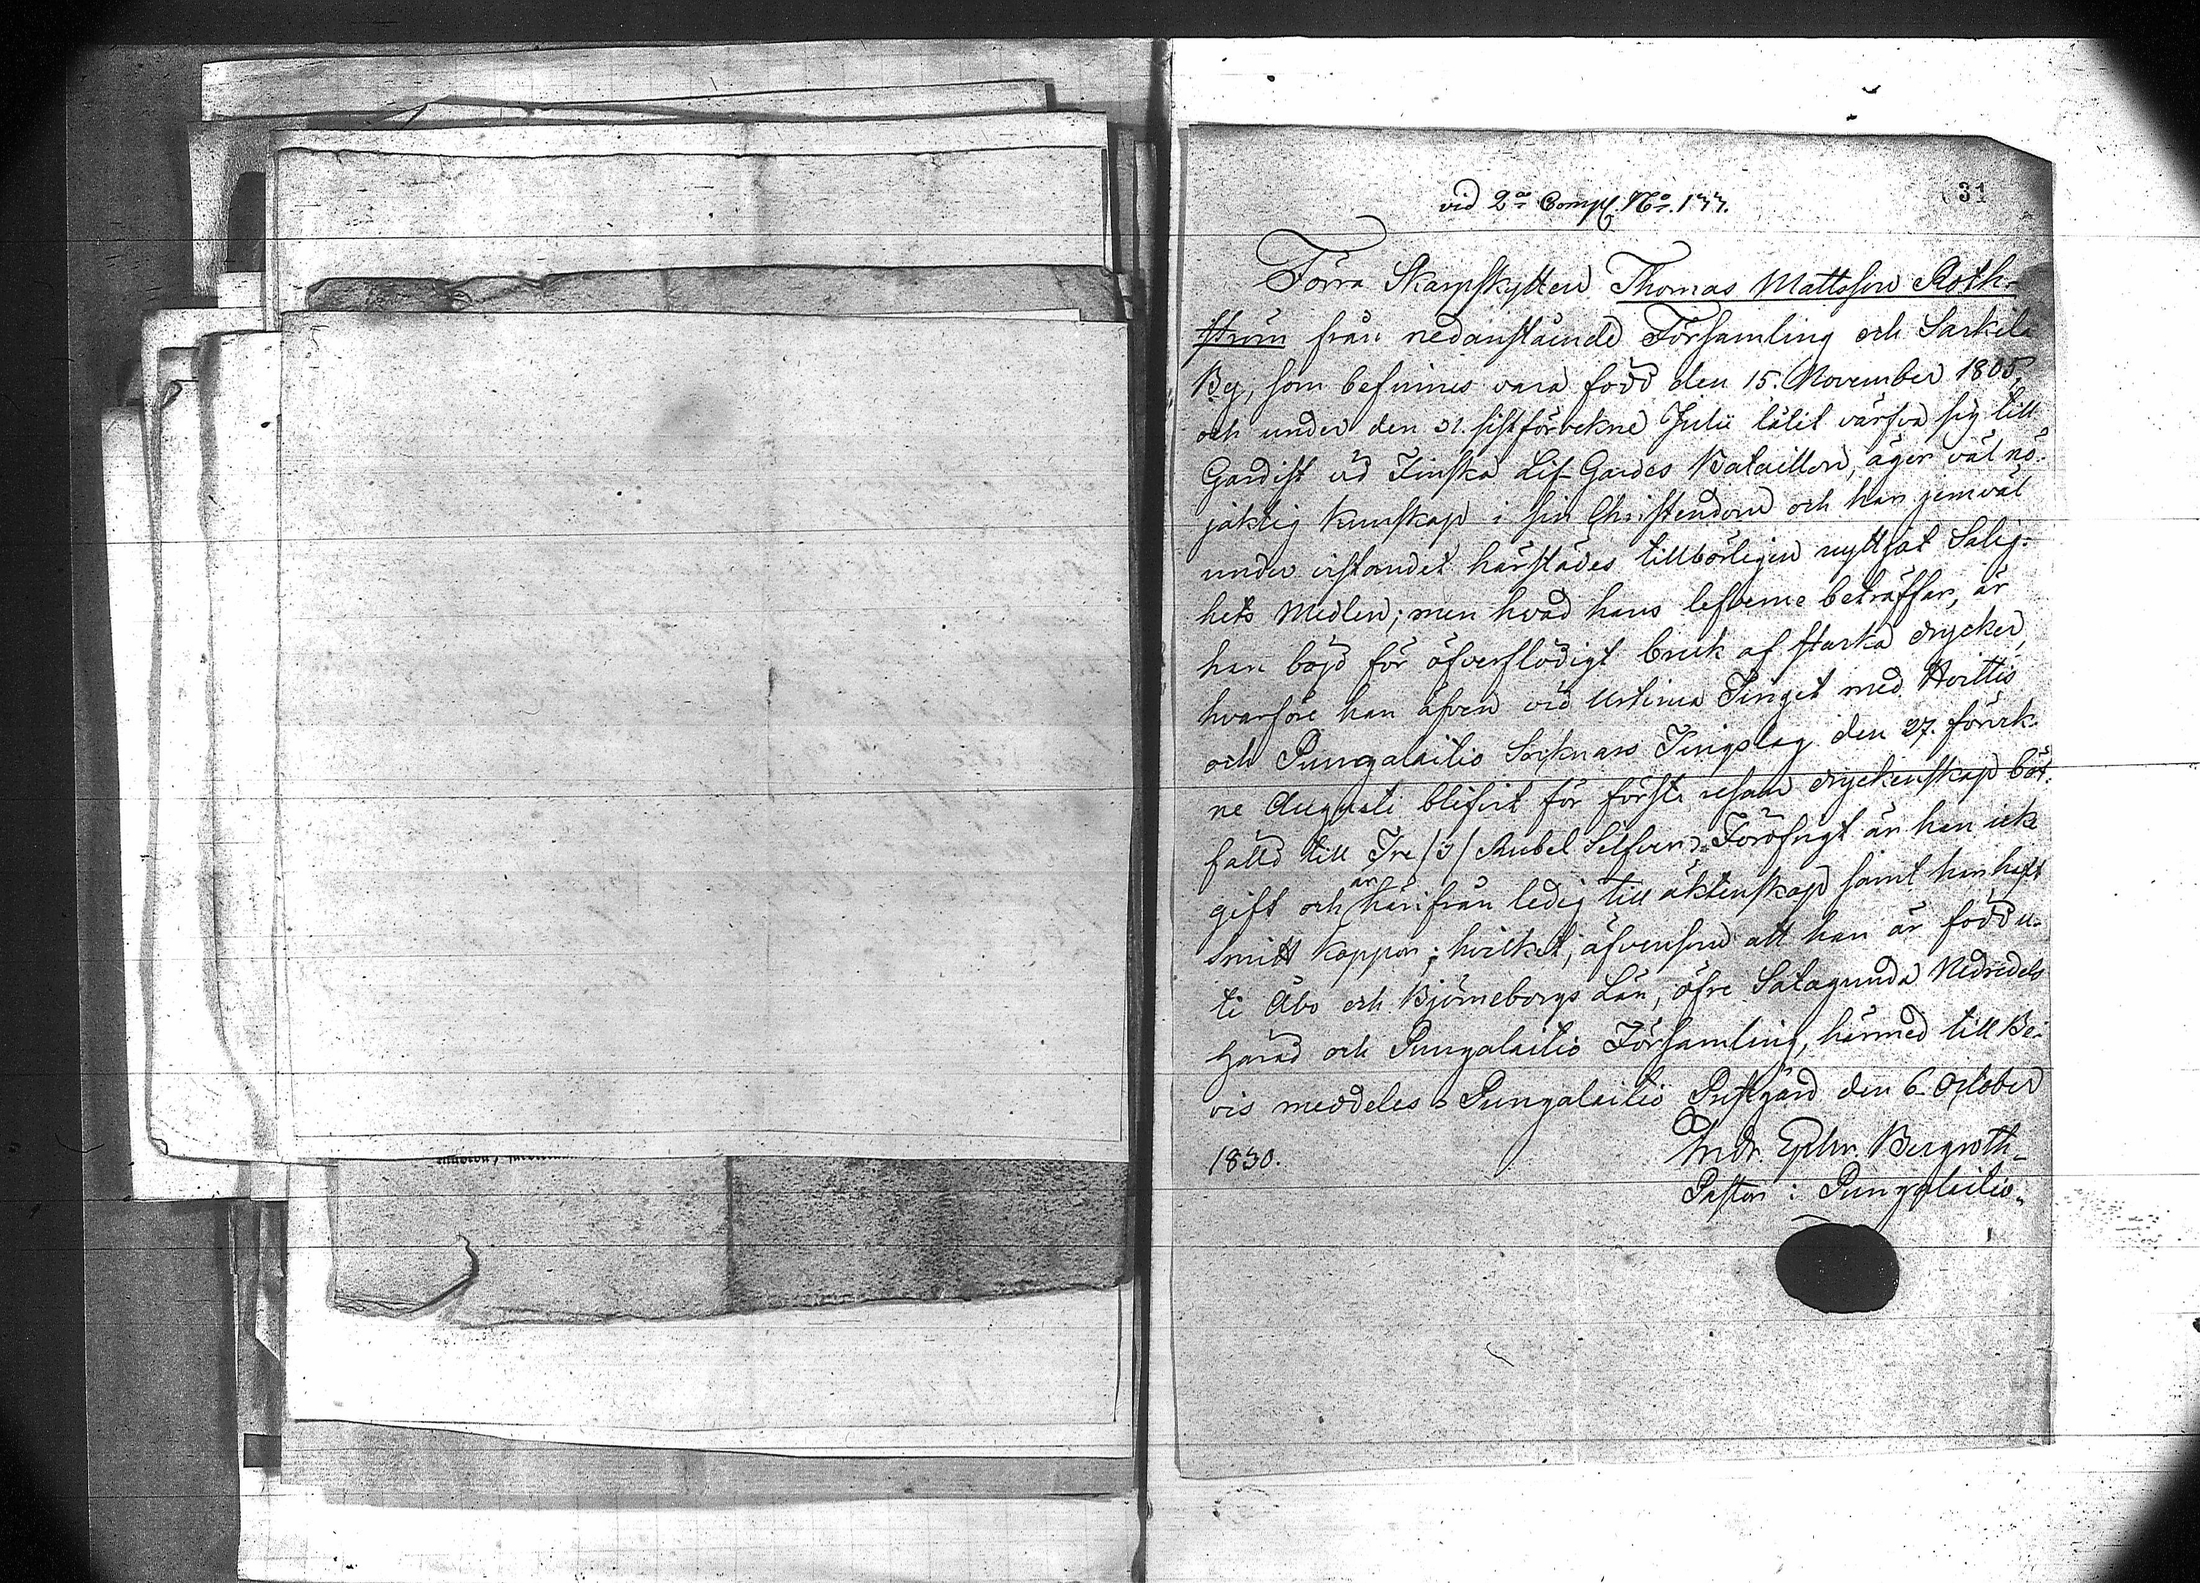 31
vid 2a Comp. No. 177.
Förra Skarpskytten Thomas Mattsson Roth-
ström från nedanstående Församling och Sarkila
By, som befinnes vara född den 15. November 1805,
och under den 31. sistförvekne Julii låtit värfva sig till
Gardist vid Finska Lif-Gardes Bataillon, äger väl nö-
jaktig kunskap i sin Christendom och han jemväl
under vistandet härstädes tillbörligen nyttjat Salig-
hets Medlen; men hvad hans lefverne beträffar, är
han böjd för öfverflödigt bruk af starka drycker,
hvarföre han äfven vid Urtima Tinget med Hvittis
och Pungalaitio Socknars Tingslag den 27. förvek-
ne Augusti blifvit för första resan dryckenskap böt-
fälld till Tre /3/ Rubel Silfver. Föröfrigt är han icke
gift och är härifrån ledig till äktenskap samt han haft
Smitt koppor; hvilket, äfvensom att han är född u-
ti Åbo och Björneborgs Län, öfre Satagunda Nedredels
Härad och Pungalaitio Församling, härmed till Be-
vis meddeles. Pungalaitio Prestgård den 6. October
1830.
Andr. Ephr. Bergroth
Pastor i Pungalaitio.